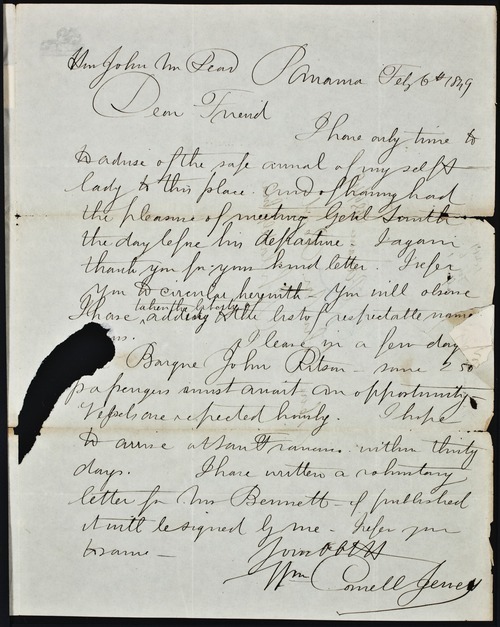 Hon John M Read Panama Feby 6th 1849
Dear Friend
I have only time to
to advise of the safe arrival of myself &
lady to this place. and of having had
the pleasure of meeting Genl Smith
the day before his departure. I again
thank you for your kind letter. I refer
you to circular herewith - You will observe
taken the liberty of
I have adding to the list of respectable name
I leave in a few day
Barque John Ritson - some 250
passengers must await an opportunity
Vessels are expected hourly. I hope
to arrive at San Francisco within thirty
days. I have written a voluntary
letter for Mr Bennett - if published
it will be signed by me - I refer you
to same -
Your Obt St
Wm Cornell Jewett